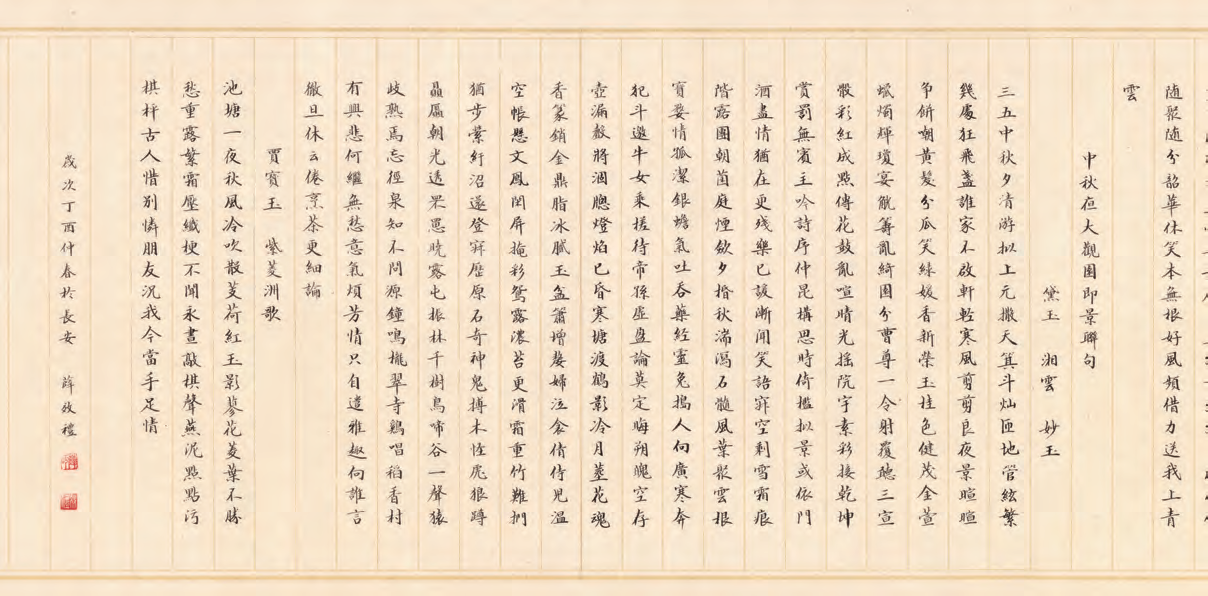 随聚隨分韶華休笑本無根好風頻借力送我上青
雲
中秋夜大觀園即景聯句
黛玉 湘雲 妙玉
三五中秋夕清游拟上元撒天箕斗灿匝地管絃繁
幾處狂飛盞誰家不啟軒輕寒風剪剪良夜景暄暄
争餅嘲黄髮分瓜笑綠媛香新榮玉桂色健茂金萱
蠟燭輝瓊宴觥籌亂綺園分曹尊一令射覆聽三宣
骰彩紅成點傳花鼓亂喧晴光摇院宇素彩接乾坤
賞罰無賓主吟詩序仲昆構思時倚檻拟景或依門
酒盡情猶在更残樂已諼漸聞笑語寂空剩雪霜痕
階露團朝菌庭煙斂夕棔秋湍瀉石髓風葉聚雲根
寳婺情孤潔銀蟾氣吐吞藥經靈兔搗人向廣寒奔
犯斗邀牛女乘槎待帝孫虚盈論莫定晦朔魄空存
壺漏聲將涸牕燈焰已昏寒塘渡鶴影冷月葬花魂
香篆銷金鼎脂冰膩玉盆簫增嫠婦泣衾倩侍兒温
空帳懸文鳳閑屏掩彩鴛露濃苔更滑霜重竹難捫
猶步縈紆沼還登寂歷原石奇神鬼搏木怪虎狼蹲
贔屭朝光透罘罳曉露屯振林千樹鳥啼谷一聲猿
歧熟焉忘徑泉知不問源鐘鳴櫳翠寺鷄唱稻香村
有興悲何繼無愁意氣煩芳情只自遣雅趣向誰言
徹旦休云倦烹茶更細論
賈寳玉 紫菱洲歌
池塘一夜秋風冷吹散芰荷紅玉影蓼花菱葉不勝
愁重露繁霜壓纖梗不聞永晝敲棋聲燕泥點點污
棋枰古人惜别憐朋友况我今當手足情
歲次丁酉仲春於長安 薛致禮